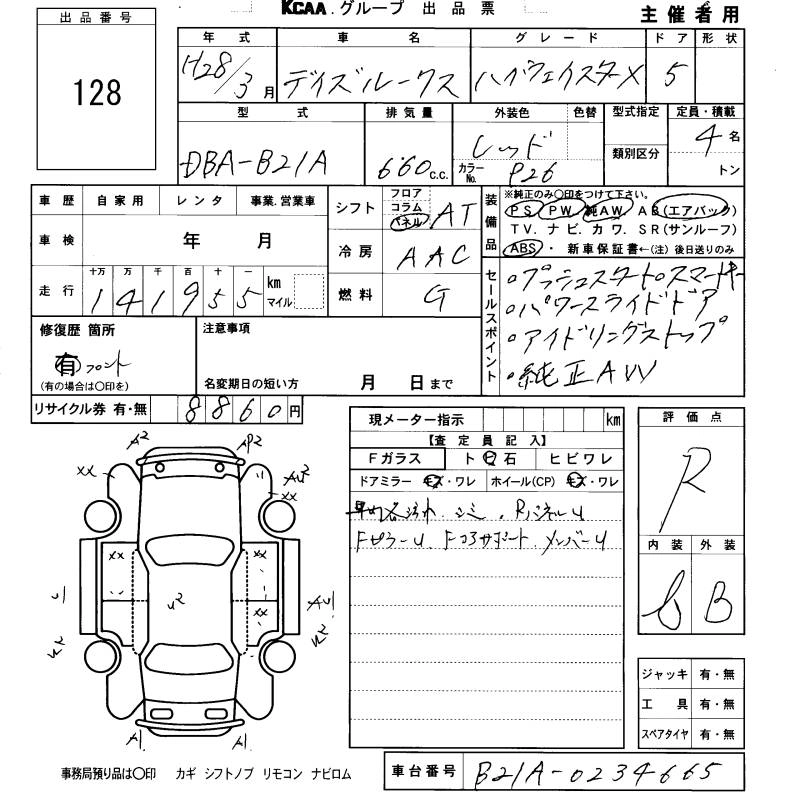 KCAA.グループ 出品票
主催者用
出品番号
128
年式 車名 グレード ドア 形状
H28/3月 デイズルークス ハイウェイスターX 5
型式 排気量 外装色 色替 型式指定 定員・積載
類別区分
DBA-B21A 660c.c. レッド カラーNo. P26 4名
トン
車歴 自家用 レンタ 事業.営業車
シフト フロア コラム パネル AT
装備品
※純正のみ○印をつけて下さい。
PS PW 純AW. AB(エアバック)
TV. ナビ. カワ. SR(サンルーフ)
ABS・ 新車保証書←(注)後日送りのみ
車検 年 月
冷房 AAC
走行 十万 万 千 百 十 一
141955 km マイル
燃料 G
セールスポイント
・プッシュスタート・スマートキー
・パワースライドドア
・アイドリングストップ
・純正AW
修復歴 箇所
有 フロント
(有の場合は○印を)
注意事項
名変期日の短い方 月 日まで
リサイクル券 有・無 8860円
現メーター指示 km
【査定員記入】
Fガラス ト ヒ 石 ヒビワレ
ドアミラー キズ・ワレ ホイール(CP) キズ・ワレ
シミ. RパネルU
FピラーU. Fコアサポート. メンバーU
評価点
R
内装 外装
B
A2 AP2
xx AU2
xx
xx xx
U2
xx
AU
A1 A1
ジャッキ 有・無
工具 有・無
スペアタイヤ 有・無
事務局預り品は○印 カギ シフトノブ リモコン ナビロム
車台番号 B21A-0234665